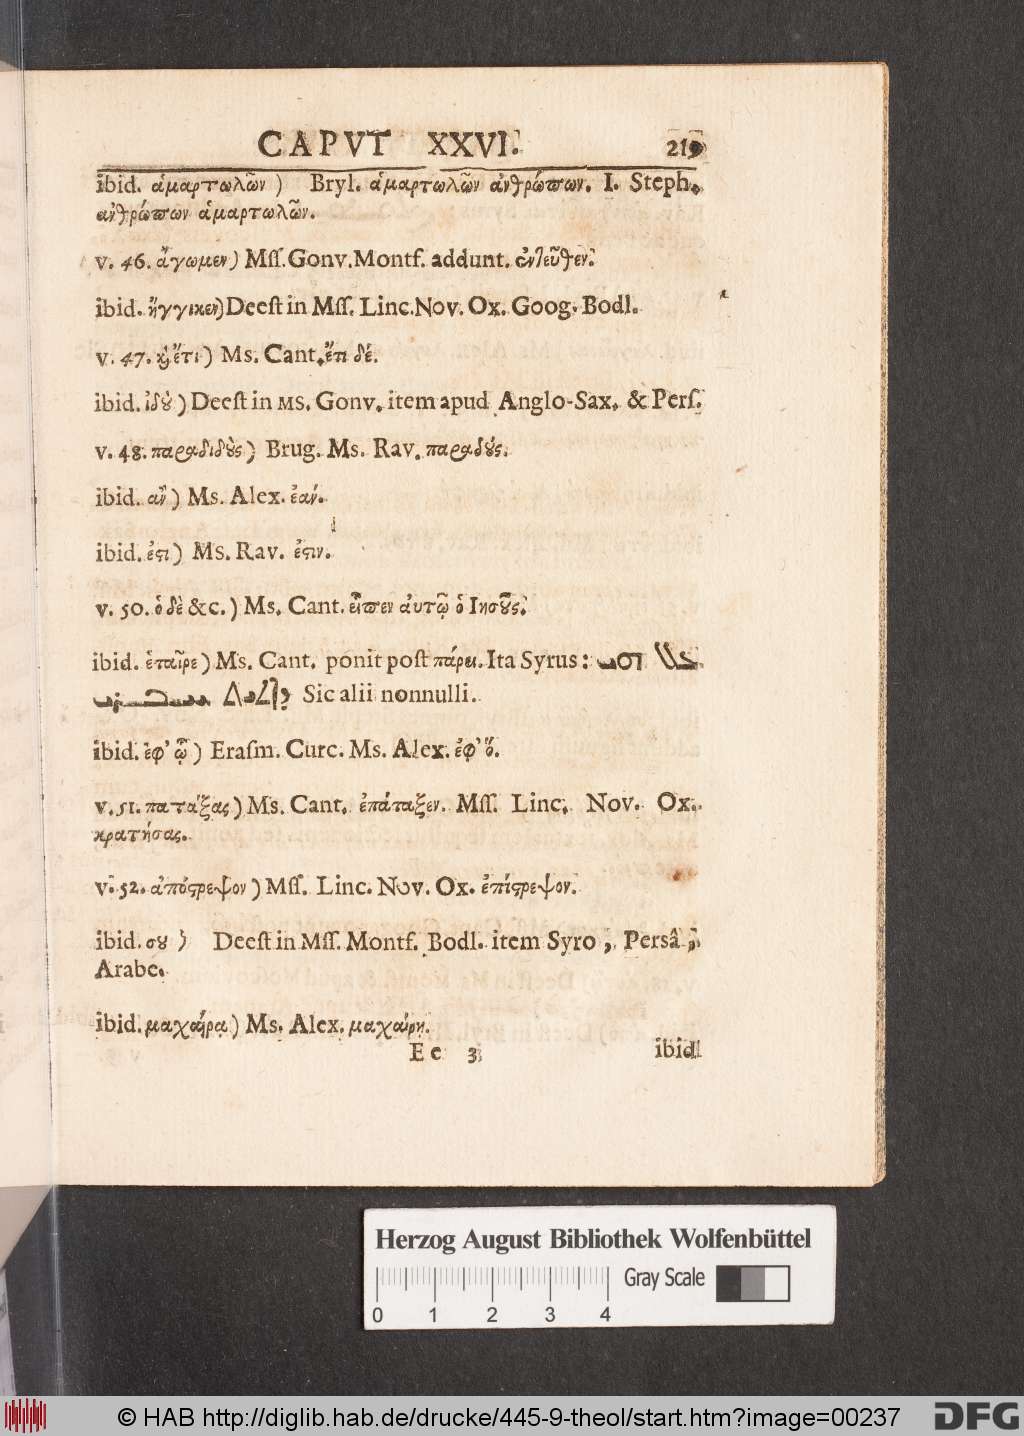 CAPVT XXVI. 219
ibid. ἁμαρτωλῶν) Bryl. ἁμαρτωλῶν ἀνθρώπων. I. Steph.
ἀνθρώπων ἁμαρτωλῶν.
v. 46. ἄγωμεν) Mſſ. Gonv. Montf. addunt. ἐντεῦθεν.
ibid. ἤγγικεν) Deeſt in Mſſ. Linc. Nov. Ox. Goog. Bodl.
v. 47. ϗ ἔτι) Ms. Cant. ἔτι δέ.
ibid. ἰδȣ̀) Deeſt in MS. Gonv. item apud Anglo-Sax. & Perſ.
v. 48. παραδιδȣ̀ς) Brug. Ms. Rav. παραδȣ́ς.
ibid. ἂν) Ms. Alex. ἐάν.
ibid. ἐϛι) Ms. Rav. ἐϛιν.
v. 50. ὁ δὲ &c.) Ms. Cant. εἶπεν αὐτῷ ὁ Ιησȣ͂ς.
ibid. ἑταῖρε) Ms. Cant. ponit poſt πάρει. Ita Syrus:
Sic alii nonnulli.
ibid. ἐφ' ᾧ) Eraſm. Curc. Ms. Alex. ἐφ' ὅ.
v. 51. πατάξας) Ms. Cant. ἐπάταξεν. Mſſ. Linc. Nov. Ox.
κρατήσας.
v. 52. ἀπόϛρεψον) Mſſ. Linc. Nov. Ox. ἐπίϛρεψον.
ibid. σȣ) Deeſt in Mſſ. Montf. Bodl. item Syro, Persâ,
Arabe.
ibid. μαχαίρᾳ) Ms. Alex. μαχαίρῃ.
Ee 3 ibid.
Herzog August Bibliothek Wolfenbüttel
Gray Scale
0 1 2 3 4
© HAB http://diglib.hab.de/drucke/445-9-theol/start.htm?image=00237 DFG